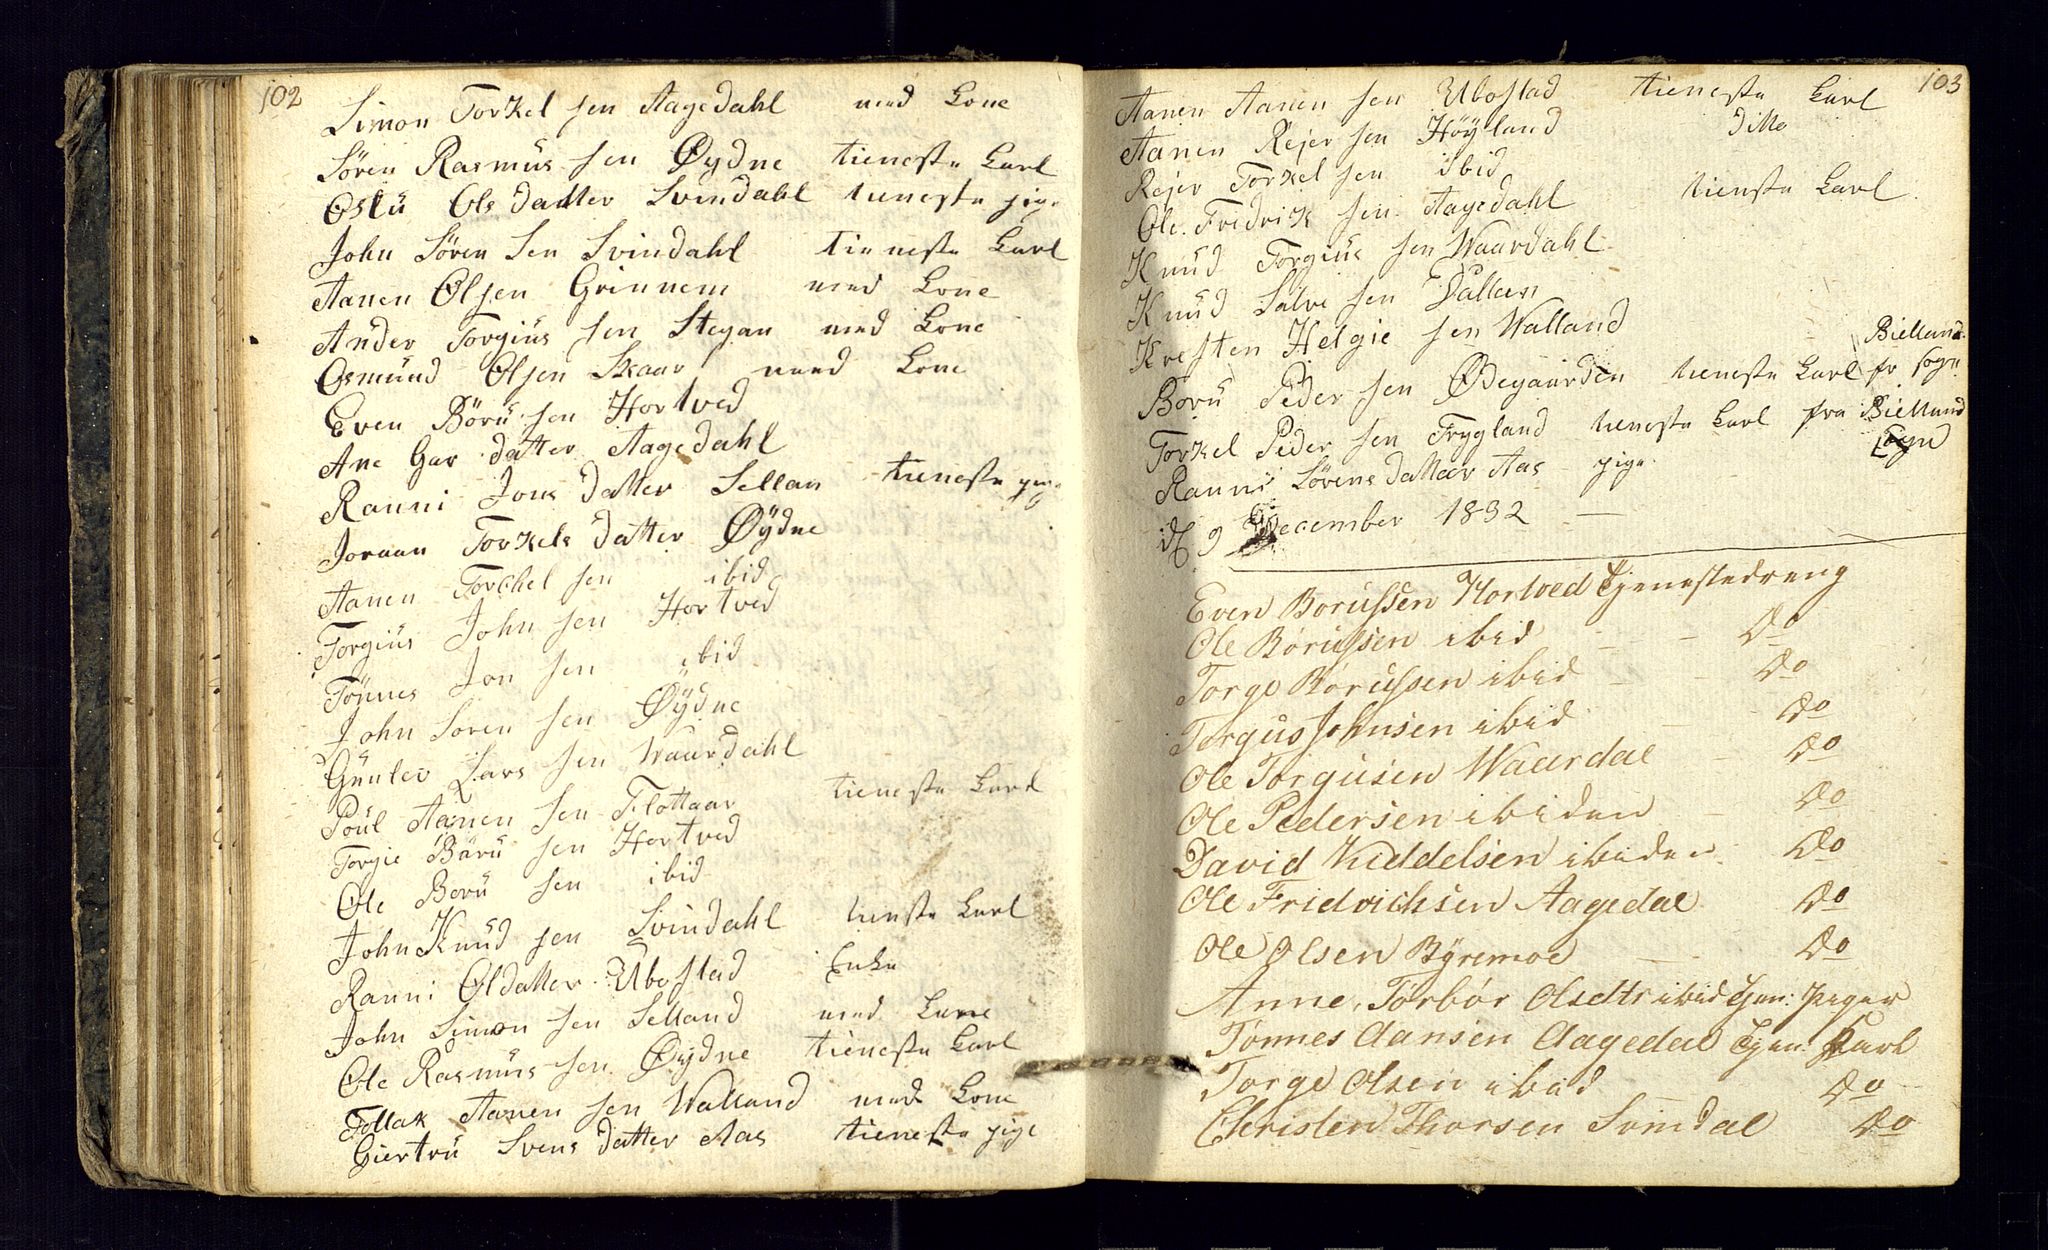 102
Simon Torkel sen Aagedahl med Kone
Sören Rasmus sen Øydne tieneste Karl
Oslü Ols datter Svindahl tieneste pige
John Sören Sen Svindahl tieneste Karl
Aanen Olsen Grinnem med Kone
Ander Torgiüs sen Stegan med Kone
Osmünd Olsen Skaar med Kone
Even Börü sen Hortved
Ane Gar datter Aagedahl
Ranni Jons datter Sellan tieneste
Joraan Torkels datter Øydne
Aanen Torchel sen ibid
Torgiüs John sen Hortved
Tönnes Jon sen ibid
John Soren sen Øydne
Günlev Lars sen Waardahl
Poül Aanen sen Flottaar tieneste Karl
Torgie Börü sen Hortved
Ole Borü sen ibid
John Knüd sen Svindahl tienste Karl
Ranni Oldatter Ubostad Enke
John Simon sen Selland med Kone
Ole Rasmus sen Øydne tieneste Karl
Follak Aanen sen Walland med Kone
Giertrü Svens datter Aas tieneste pige
103
Aanen Aanen sen Ubostad tieneste Karl
Aanen Rejer sen Höyland ditto
Rejer Torkel sen ibid
Ole Fridrik sen Aagedahl tienste Karl
Knüd Torgius sen Waardahl
Knüd Salve sen
Kresten Helgie sen Walland
Borü Peder sen Ødegaarden tieneste Karl fr Bielland sogn
Torkel Peder sen Trygland tieneste Karl fra Bielland Sogn
Ranni Sörens dattaar Aas pige
9 December 1832
Even Borüssen Hortved Tjenestedreng
Ole Börüssen ibid Do
Torge Börüssen ibid Do
Torgus Johnsen ibid Do
Ole Torgusen Waardal Do
Ole Pedersen ibidem Do
David Kiddelsen ibidem Do
Ole Fridrichsen Aagedal Do
Ole Olsen Byremoe Do
Anne, Torbör Olsdtr ibid Tjen: Piger
Tönnes Aansen Aagedal Tjen Karl
Torge Olsen ibid Do
Christen Thorsen Svindal Do